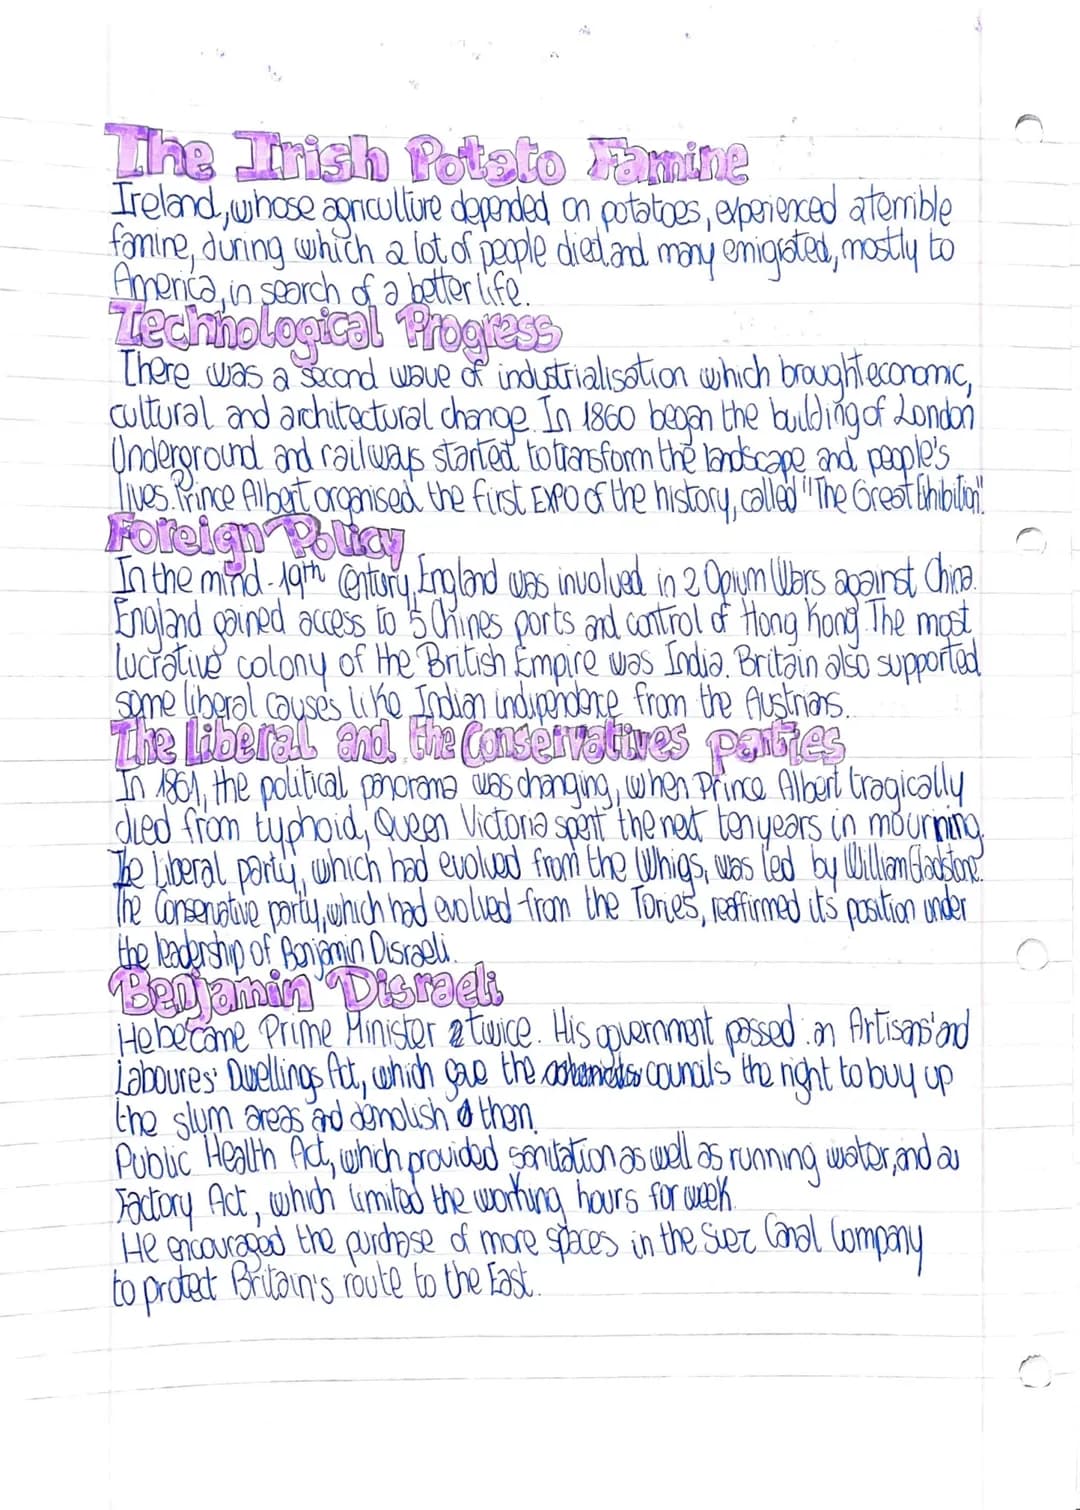 The Irish Potato Famine
Ireland, whose agriculture depended on potatoes, experienced a terrible
famine, during which a lot of people died and many emigrated, mostly to
America, in search of a better life.
Technological Progress
There was a second wave of industrialisation which brought economic,
cultural and architectural change. In 1860 began the building of London
Underground and railways started to transform the landscape and people's
lives. Prince Albert organised the first EXPO of the history, called "The Great Exhibition".
Foreign Policy
In the mind-19th Century, England was involved in 2 Opium Wars against China.
England gained access to 5 Chines ports and control of Hong Kong. The most
lucrative colony of the British Empire was India. Britain also supported
some liberal causes like Indian indipendence from the Austrians.
The Liberal and the Conservatives parties
In 1861, the political panorama was changing, when Prince Albert tragically
died from typhoid, Queen Victoria spent the next ten years in mourning.
The Liberal party, which had evolved from the Whigs, was led by William Gladstone.
The Conservative party, which had evolved from the Tories, reaffirmed its position under
the leadership of Benjamin Disraeli.
Benjamin Disraeli
He became Prime Minister twice. His government passed: an Artisans' and
Laboures' Dwellings Act, which gave the councils the right to buy up
the slum areas and demolish them.
Public Health Act, which provided sanitation as well as running water, and a
Factory Act, which limited the working hours for week.
He encouraged the purchase of more spaces in the Suez Canal Company
to protect Britain's route to the East.